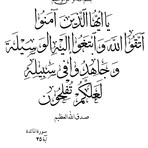 يَا أَيُّهَا الَّذِينَ آمَنُوا
اتَّقُوا اللَّهَ وَابْتَغُوا إِلَيْهِ الْوَسِيلَةَ
وَجَاهِدُوا فِي سَبِيلِهِ
لَعَلَّكُمْ تُفْلِحُونَ
صدق الله العظيم
سورة المائدة
آية ٣٥